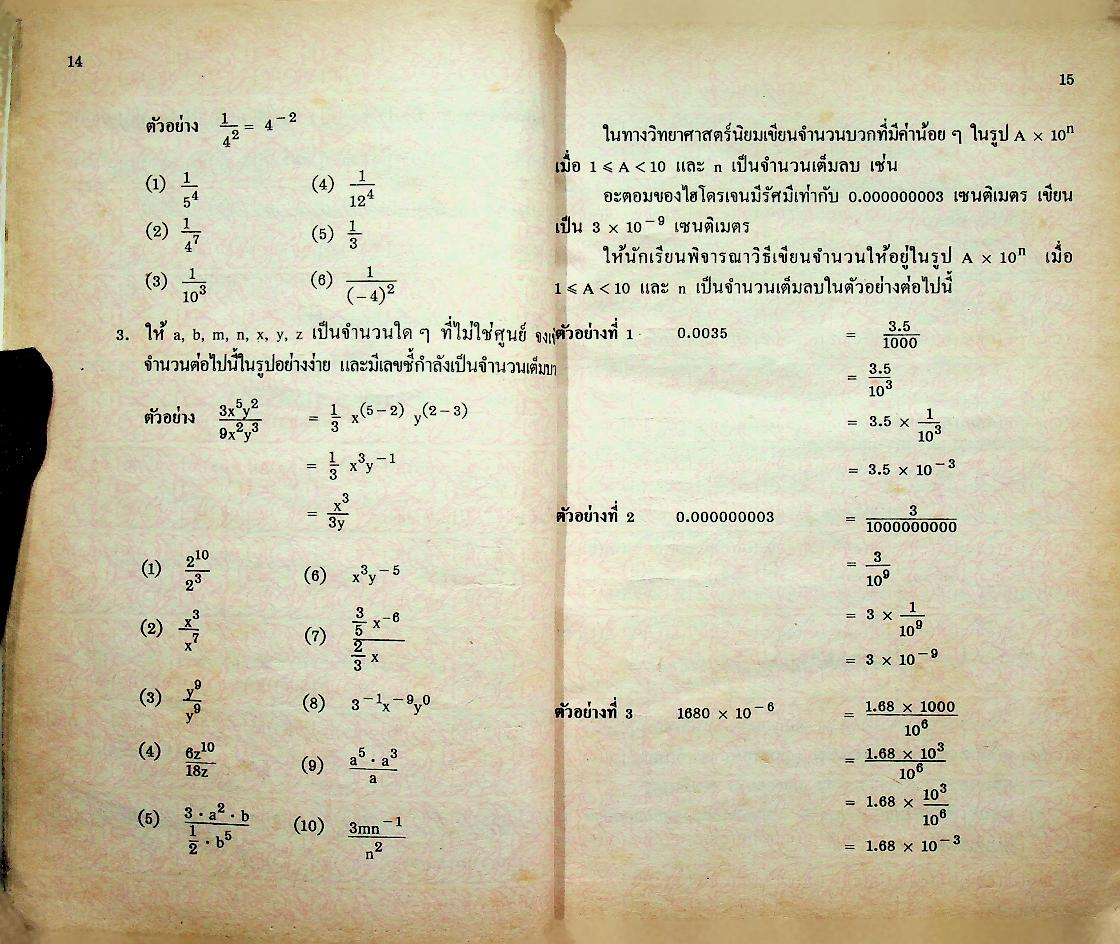 14
ตัวอย่าง 1/4² = 4⁻²
(1) 1/5⁴ (4) 1/12⁴
(2) 1/4⁷ (5) 1/3
(3) 1/10³ (6) 1/(−4)²
3. ให้ a, b, m, n, x, y, z เป็นจำนวนใด ๆ ที่ไม่ใช่ศูนย์
จำนวนต่อไปนี้ในรูปอย่างง่าย และมีเลขชี้กำลังเป็นจำนวนเต็ม
ตัวอย่าง 3x⁵y²/9x²y³ = 1/3 x⁽⁵⁻²⁾ y⁽²⁻³⁾
= 1/3 x³y⁻¹
= x³/3y
(1) 2¹⁰/2³ (6) x³y⁻⁵
(2) x³/x⁷ (7) (3/5 x⁻⁶)/(2/3 x)
(3) y⁹/y⁹ (8) 3⁻¹x⁻⁹y⁰
(4) 6z¹⁰/18z (9) a⁵ · a³/a
(5) (3 · a² · b)/(1/2 · b⁵) (10) 3mn⁻¹/n²
15
ในทางวิทยาศาสตร์นิยมเขียนจำนวนบวกที่มีค่าน้อย ๆ ในรูป A × 10ⁿ
เมื่อ 1 ⩽ A < 10 และ n เป็นจำนวนเต็มลบ เช่น
อะตอมของไฮโดรเจนมีรัศมีเท่ากับ 0.000000003 เซนติเมตร เขียน
เป็น 3 × 10⁻⁹ เซนติเมตร
ให้นักเรียนพิจารณาวิธีเขียนจำนวนให้อยู่ในรูป A × 10ⁿ เมื่อ
1 ⩽ A < 10 และ n เป็นจำนวนเต็มลบในตัวอย่างต่อไปนี้
ตัวอย่างที่ 1 0.0035 = 3.5/1000
= 3.5/10³
= 3.5 × 1/10³
= 3.5 × 10⁻³
ตัวอย่างที่ 2 0.000000003 = 3/1000000000
= 3/10⁹
= 3 × 1/10⁹
= 3 × 10⁻⁹
ตัวอย่างที่ 3 1680 × 10⁻⁶ = 1.68 × 1000/10⁶
= 1.68 × 10³/10⁶
= 1.68 × 10³/10⁶
= 1.68 × 10⁻³